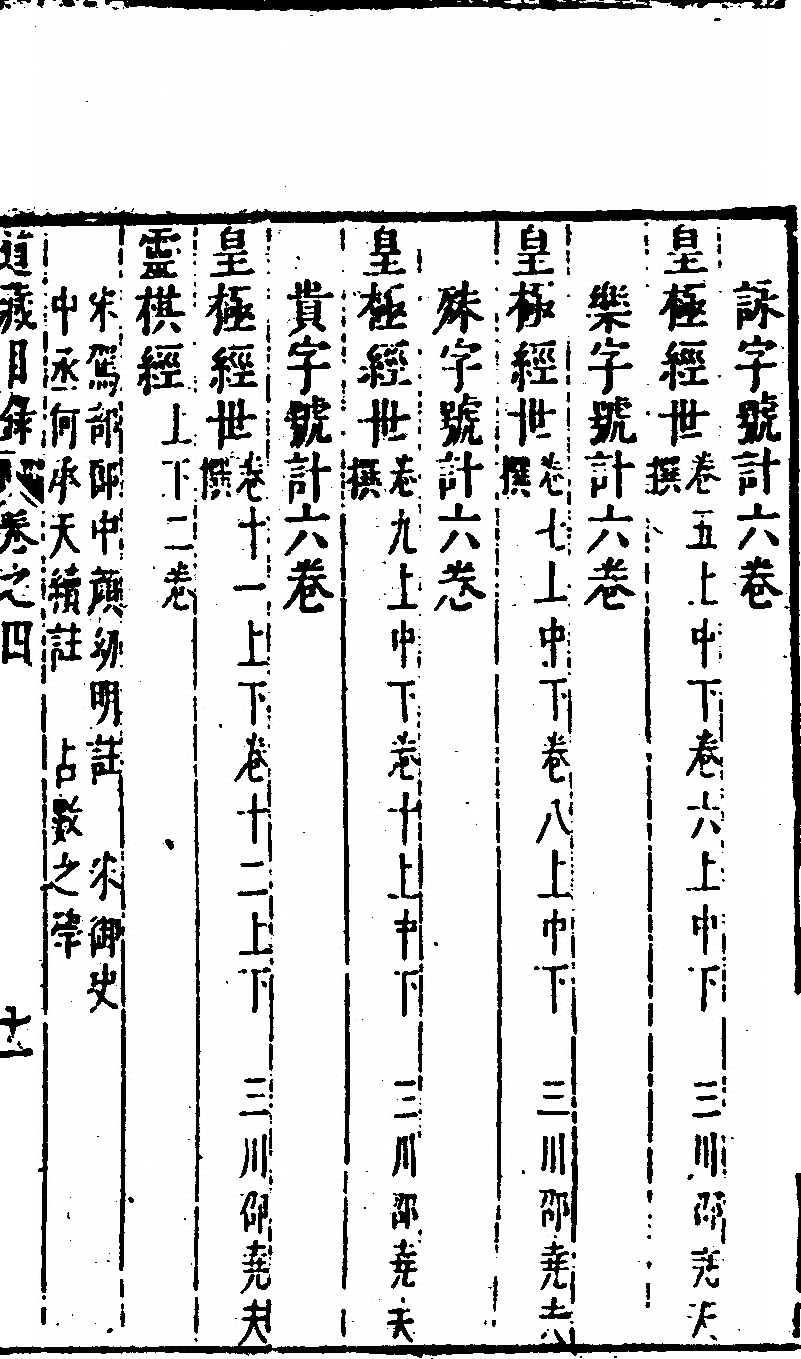 詠字號計六卷
皇極經世卷五上中下卷六上中下　三川邵堯夫
撰
樂字號計六卷
皇極經世卷七上中下卷八上中下　三川邵堯夫
撰
殊字號計六卷
皇極經世卷九上中下卷十上中下　三川邵堯夫
撰
貴字號計六卷
皇極經世卷十一上下卷十二上下　三川邵堯夫
撰
靈棋經上下二卷
宋駕部郎中顏幼明註　宋御史
中丞何承天續註　占數之學
道藏目錄卷之四
十一